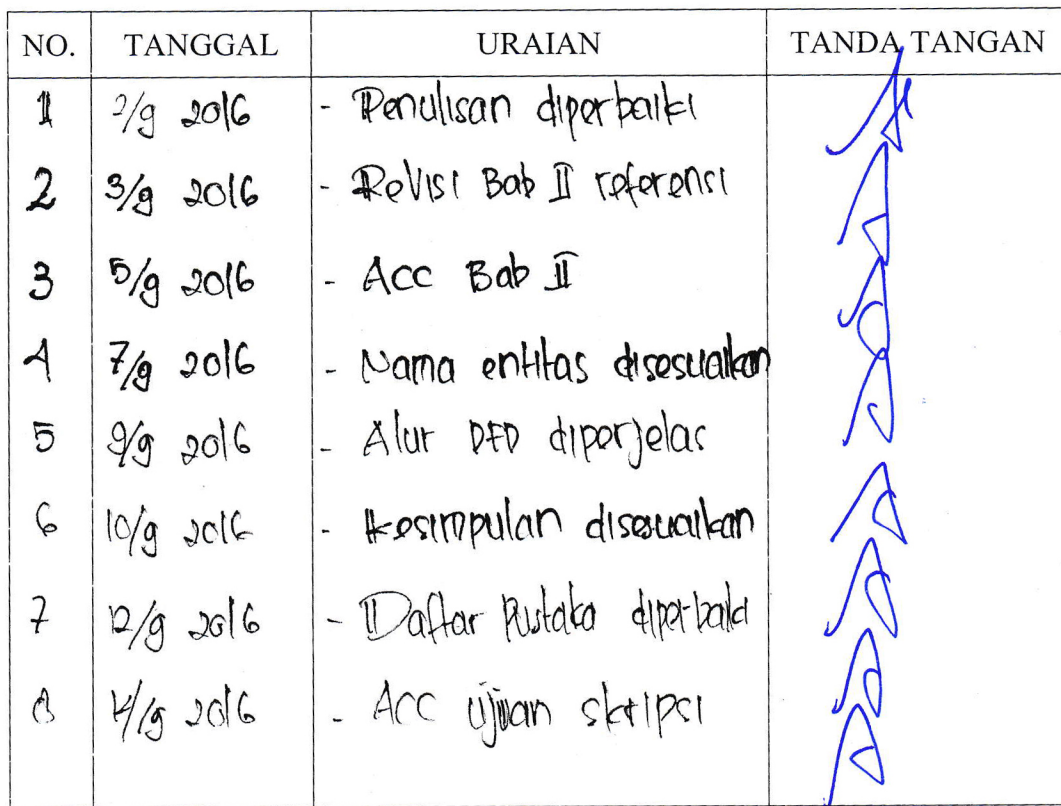 NO. TANGGAL URAIAN TANDA TANGAN
1 2/9 2016 - Penulisan diperbaiki
2 3/9 2016 - Revisi Bab II referensi
3 5/9 2016 - Acc Bab II
4 7/9 2016 - Nama entitas disesuaikan
5 9/9 2016 - Alur DFD diperjelas
6 10/9 2016 - Kesimpulan disesuaikan
7 12/9 2016 - Daftar Pustaka diperbaiki
8 14/9 2016 - Acc ujian skripsi